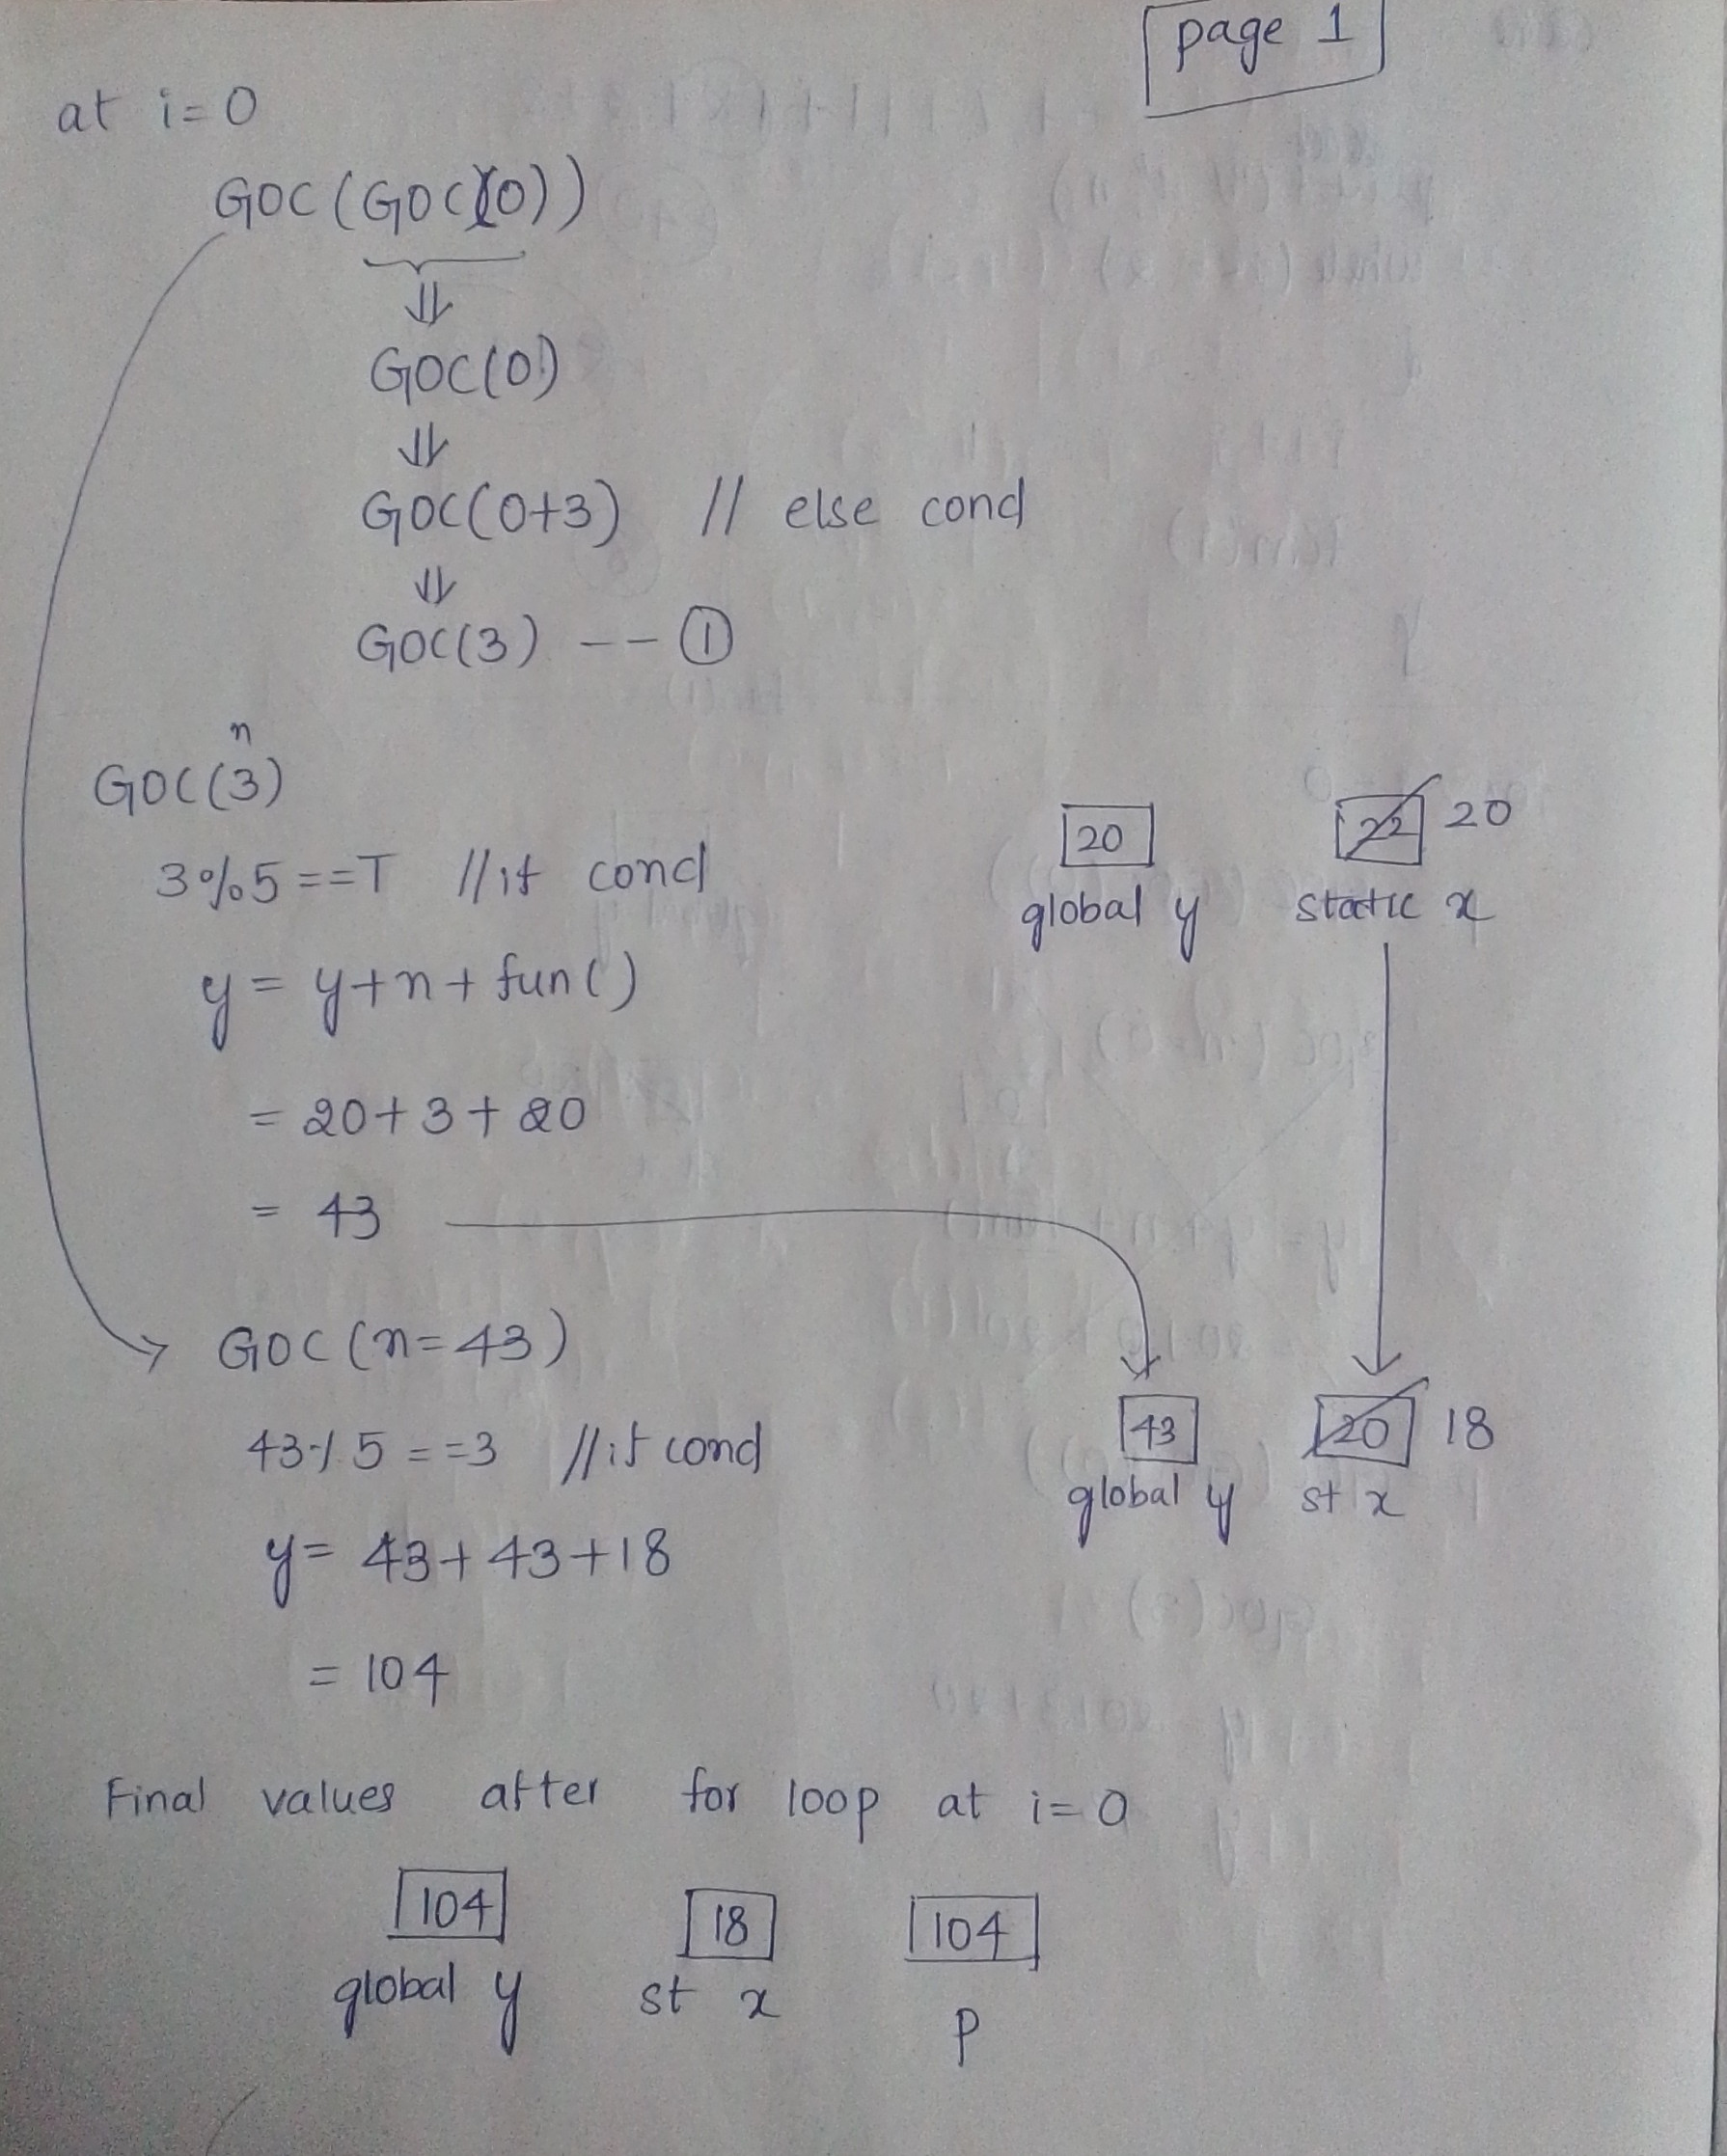 page 1
at i=0
GOC(GOC(0))
⇓
GOC(0)
⇓
GOC(0+3) // else cond
⇓
GOC(3) -- ①
n
GOC(3)
20 22 20
3%5==T //if cond
global y static x
y = y+n+fun()
= 20+3+20
= 43
GOC(n=43)
43 20 18
43%5==3 //if cond
global y st x
y= 43+43+18
= 104
Final values after for loop at i=0
104 18 104
global y st x p